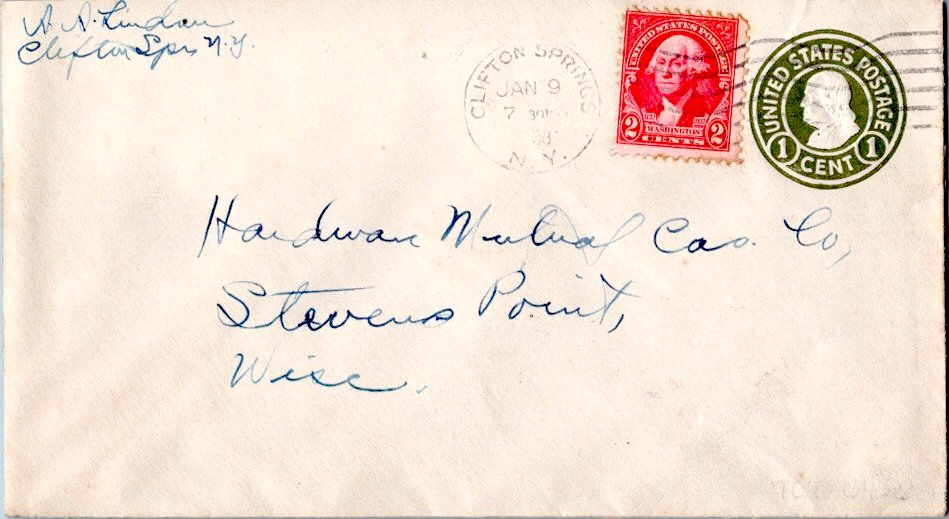 A. A. Lindan
Clifton Spr. N.Y.
CLIFTON SPRINGS
JAN 9
7 30
N.Y.
UNITED STATES POSTAGE
1732 1932
2 WASHINGTON 2
CENTS
UNITED STATES POSTAGE
1 CENT 1
Hardware Mutual Cas. Co,
Stevens Point,
Wisc.